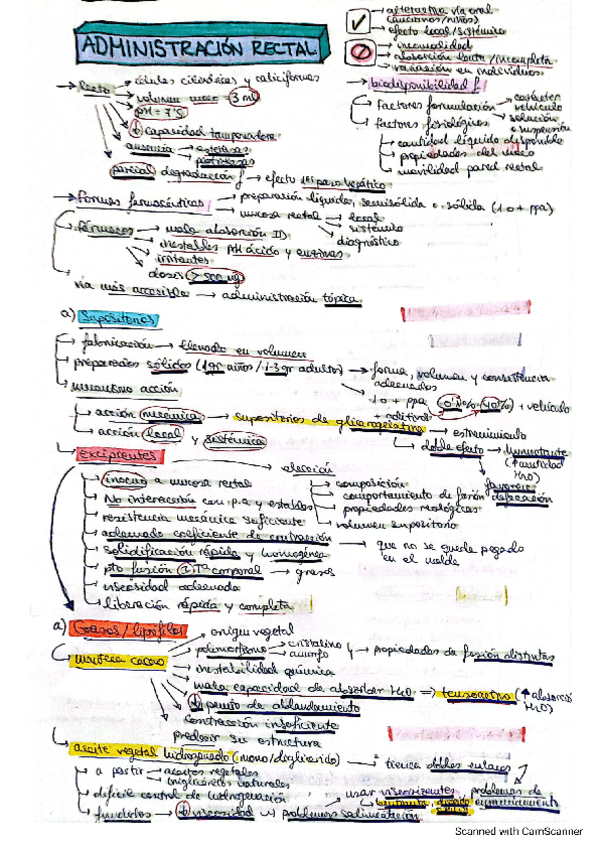 ADMINISTRACIÓN RECTAL
alternativa vía oral
(ancianos/niños)
efecto local/sistémico
incomodidad
absorción lenta/incompleta
variación en individuos
biodisponibilidad f
factores formulación → carácter
vehículo
solución
o suspensión
factores fisiológicos
cantidad líquido disponible
propiedades del moco
movilidad pared rectal
recto → células cilíndricas y caliciformes
volumen moco 3 ml
pH = 7'5
↓ capacidad tamponadora
ausencia → esterasas
proteasas
parcial degradación f → efecto 1er paso hepático
Formas farmacéuticas → preparación líquida, semisólida o sólida (1 o + ppa)
mucosa rectal → local
sistémico
diagnóstico
fármacos → mala absorción ID
inestables pH ácido y enzimas
irritantes
dosis > 500 mg
vía más accesible → administración tópica
a) Supositorios
fabricación → llenado en volumen
preparados sólidos (1 gr niños / 1-3 gr adultos) → forma, volumen y consistencia
adecuados
1 o + ppa (0'1% - 40%) + vehículo
+ aditivos
mecanismo acción
acción mecánica → supositorios de glicerogelatina → estreñimiento
doble efecto → humectante
(↑ cantidad
H2O)
favorece
defecación
acción local y sistémica
excipientes
elección
composición
comportamiento de fusión
propiedades reológicas
volumen supositorio
inocuo a mucosa rectal
No interacción con p.a y estables
resistencia mecánica suficiente
adecuado coeficiente de contracción → que no se quede pegado
en el molde
solidificación rápida y homogénea
pto fusión ↓ Tª corporal → grasos
viscosidad adecuada
liberación rápida y completa
a) Grasos/lipófilos
manteca cacao
origen vegetal
polimorfismo → cristalino
amorfo
propiedades de fusión distintas
inestabilidad química
mala capacidad de absorber H2O ⇒ tensoactivo (↑ absorción
H2O)
↓ punto de ablandamiento
contracción insuficiente
predecir su estructura
aceite vegetal hidrogenado (mono/diglicérido) → tienen dobles enlaces
a partir → aceites vegetales
triglicéridos naturales
difícil control de hidrogenación
problemas de
enranciamiento
usar viscosizantes
bentonita
fundidos → ↓ viscosidad → problemas sedimentación
Scanned with CamScanner